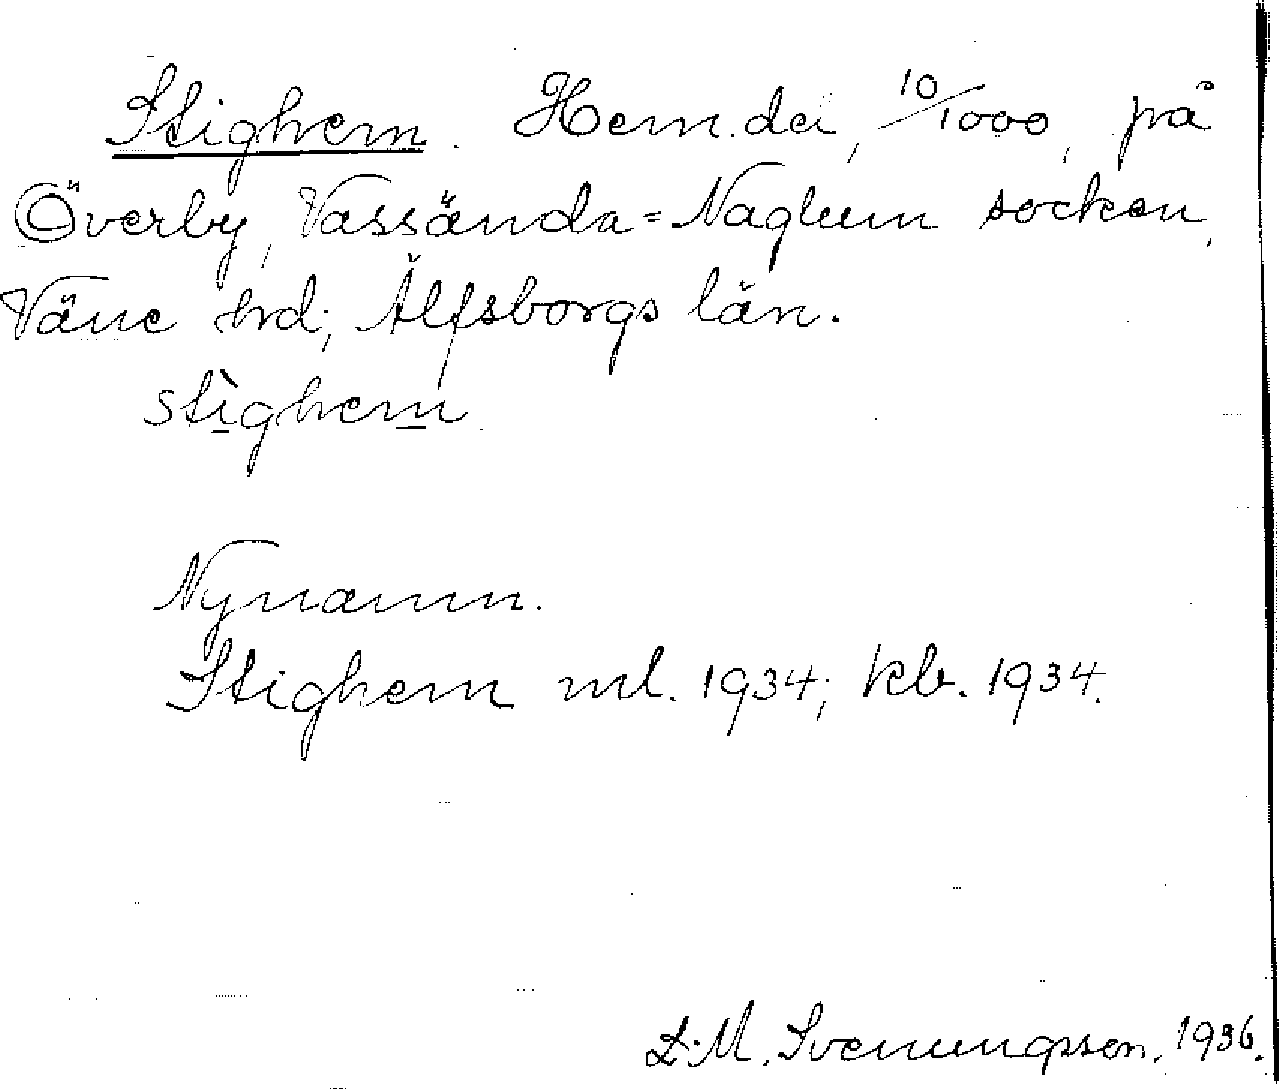 Stighem. Hem.del, 10/1000, på
Överby, Vassända=Naglum socken,
Väne hrd; Älfsborgs län.
stìghem
Nynamn.
Stighem ml. 1934; kb. 1934.
D.M. Svenungsson. 1936.